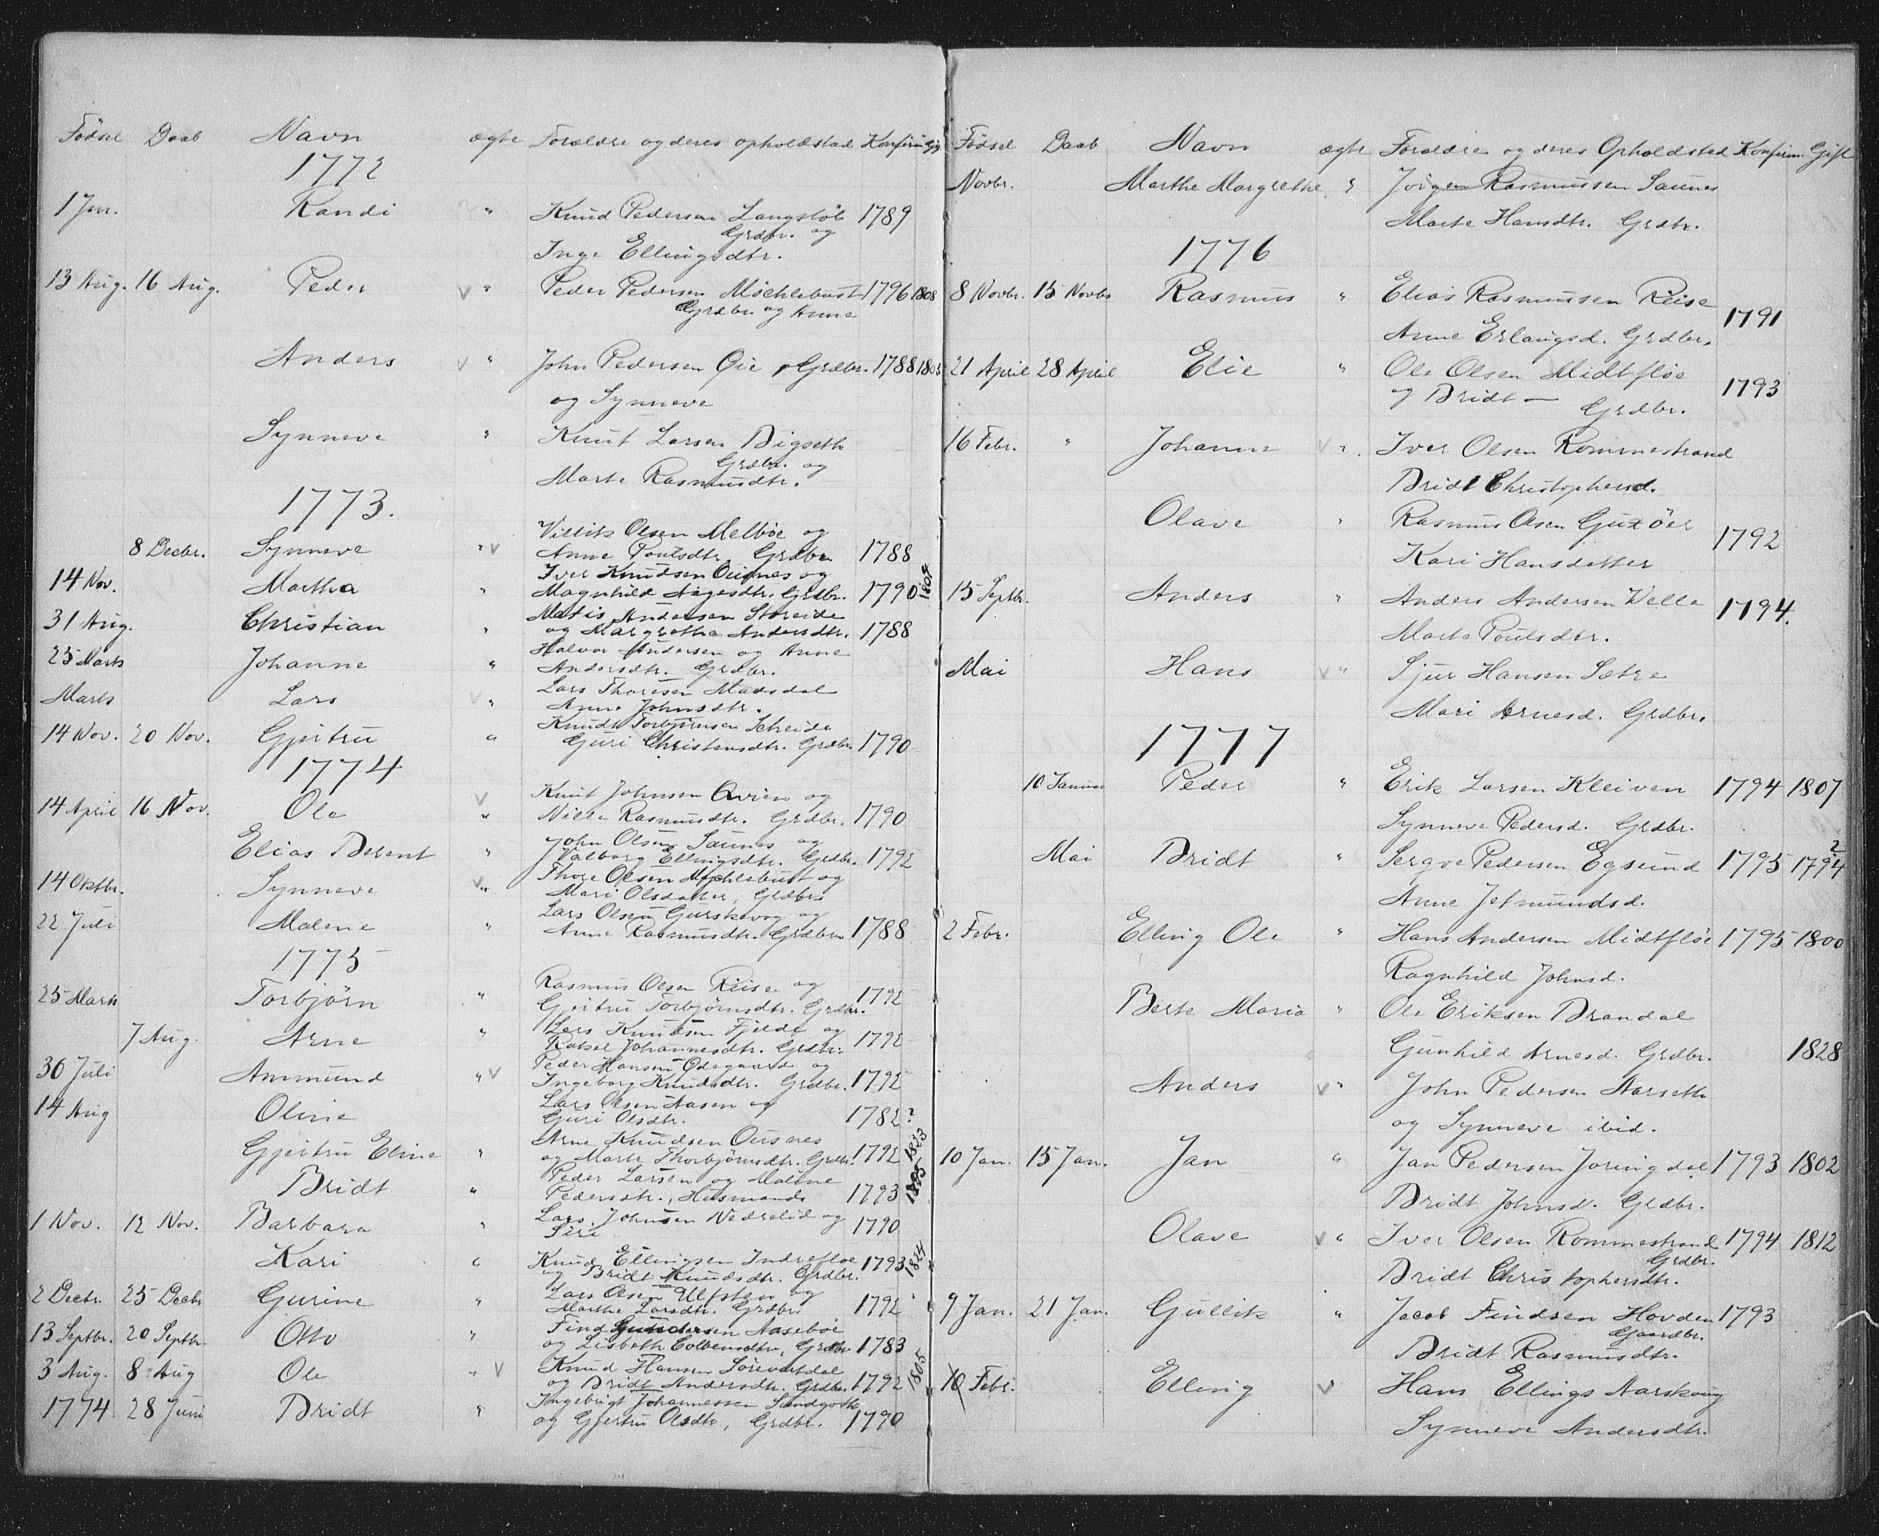 Fødsel Daab Navn ægte Forældre og deres opholdsstad Konfirm Gif
1772
1 Jan. Randi " Knud Pedersen Langsløb 1789
Grdbr. og
Inge Ellingsdtr.
13 Aug. 16 Aug. Peder v " Peder Pedersen Møchlebust 1796 1808
Grdbr. og Anne
Anders v " John Pedersen Øie Grdbr. 1788
og Synneve
Synneve " Knut Larsen Digseth
Grdbr. og
Marte Rasmusdtr.
1773.
Villik Olsen Melbøe og
8 Decbr. Synneve " v Anne Poulsdtr. Grdbr. 1788
Iver Knudsen Ousnes og
14 Nov. Martha " Magnhild Aagesdtr. Grdbr. 1790 1807
Matis Andersen Støreide
31 Aug. Christian " og Margrethe Andersdtr. 1788
Halvor Andersen og Anne
25 Marts Johanne " Andersdtr. Grdbr.
Lars Thoresen Maasdal
Marts Lars v " Anne Johnsdtr.
Knudt Torbjørnsen
14 Nov. 20 Nov. Gjertru " Guri Christensdtr. Grdbr. 1790
1774
Knut Johnsen og
14 April 16 Nov. Ole v " Nille Rasmusdtr. Grdbr. 1790
John Olsen Saunes og
Elias Berent " Valborg Ellingsdtr. Grdbr. 1792
Thore Olsen Møchlebust og
14 Oktbr. Synneve v " Mari Olsdatter, Grdbr.
Lars Olsen Gurskevog og
22 Juli Malene " Anne Rasmusdtr. Grdbr. 1788
1775
Rasmus Olsen Reise og
25 Marts Torbjørn " Gjertru Torbjørnsdtr. Grdbr. 1792
Lars Knudsen Fjelde og
7 Aug. Arne " Rakel Johannesdtr. Grdbr. 1792
Peder Hansen Odegaard og
30 Juli Ammund " v Ingeborg Knudsdtr. Grdbr. 1792
Lars Olsen Aasen og
14 Aug Oline Guri Olsdtr. 1782?
Arne Knudsen Ousnes
Gjertru Eline " og Marte Thorbjørnsdtr. Grdbr. 1792 1823
Peder Larsen og Malene
Bridt " Pedersdtr., Husmands 1793
Lars Johnsen Nedrelid og
1 Nov. 12 Nov. Barbara " Siri 1790
Knud Ellingsen Indrefloe
Kari " og Bridt Knudsdtr. Grdbr. 1793 1824
Lars Olsen Ulfsten og
2 Decbr. 25 Decbr Gurine " Marthe Larsdtr. Grdbr. 1792
Find Gundersen Aasebøe
13 Septbr. 20 Septbr. Otto " og Lisbeth Colbensdtr, Grdbr 1783
Knud Hansen Sørevartdal
3 Aug. 8 Aug Ole " v og Bridt Andersdtr. Grdbr. 1792 1805
Ingebrigt Johannessen Sandgoth
1774 28 Juni Bridt " og Gjertru Olsdtr, Grdbr. 1790
Fødsel Daab Navn ægte Forældre og deres Opholdsted Konfirm Gift
Novbr. Marthe Margrethe " Jørgen Rasmussen Saunes
Marte Hansdtr. Grdbr.
1776
8 Novbr. 15 Novbr Rasmus " Elias Rasmussen Reise
1791
Anne Erlangsd. Grdbr.
21 April 28 April Elie " Ole Olsen Midtfløe
og Bridt — 1793
Grdbr.
16 Febr. " Johanne v " Iver Olsen Rommestrand
Bridt Christophersd.
Olave " Rasmus Olsen
1792
Kari Hansdatter
15 Septbr. Anders " Anders Andersen Welle
1794.
Marte Poulsdtr.
Mai Hans v " Sjur Hansen Sætre
Mari Arnesd. Grdbr.
1777
10 Januar Peder " Erik Larsen Kleiven 1794 1807
Synneve Pedersd. Grdbr.
2
Mai Bridt " Sergve Pedersen Egsund 1795 1794
Anne Jetmundsd.
2 Febr. Elling Ole " Hans Andersen Midtfløe 1795 1800
Ragnhild Johnsd.
Berte Maria " Ole Eriksen Brandal
Gunhild Arnesd. Grdbr. 1828
Anders v " John Pedersen Aarseth
og Synneve ibid.
10 Jan. 15 Jan. Jan " Jan Pedersen Joringdal 1793 1802
Bridt Johnsd. Grdbr.
Olave v " Iver Olsen Rommestrand 1794 1812
Grdbr.
Bridt Christophersdtr.
9 Jan. 21 Jan. Gullik " Jacob Findsen Hovden 1793
Gaardbr.
Bridt Rasmusdtr.
10 Febr. Elling " Hans Ellings Aarskoug
Synneve Andersdtr.